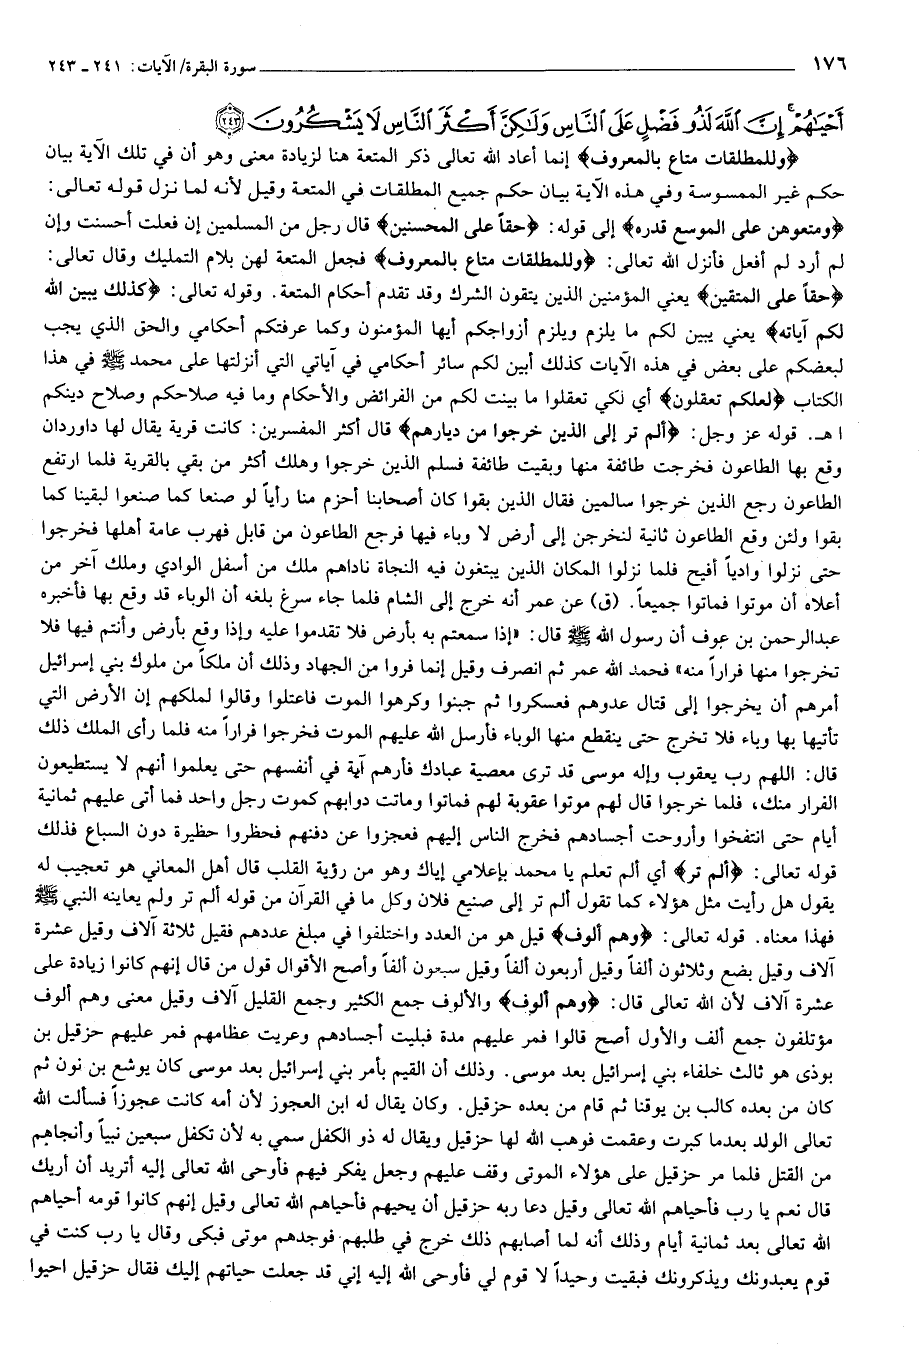 ١٧٦ سورة البقرة/ الآيات: ٢٤١ ـ ٢٤٣
أَحْيَٰهُمْ إِنَّ ٱللَّهَ لَذُو فَضْلٍ عَلَى ٱلنَّاسِ وَلَٰكِنَّ أَكْثَرَ ٱلنَّاسِ لَا يَشْكُرُونَ ٢٤٣
﴿وللمطلقات متاع بالمعروف﴾ إنما أعاد الله تعالى ذكر المتعة هنا لزيادة معنى وهو أن في تلك الآية بيان
حكم غير الممسوسة وفي هذه الآية بيان حكم جميع المطلقات في المتعة وقيل لأنه لما نزل قوله تعالى:
﴿ومتعوهن على الموسع قدره﴾ إلى قوله: ﴿حقاً على المحسنين﴾ قال رجل من المسلمين إن فعلت أحسنت وإن
لم أرد لم أفعل فأنزل الله تعالى: ﴿وللمطلقات متاع بالمعروف﴾ فجعل المتعة لهن بلام التمليك وقال تعالى:
﴿حقاً على المتقين﴾ يعني المؤمنين الذين يتقون الشرك وقد تقدم أحكام المتعة. وقوله تعالى: ﴿كذلك يبين الله
لكم آياته﴾ يعني يبين لكم ما يلزم ويلزم أزواجكم أيها المؤمنون وكما عرفتكم أحكامي والحق الذي يجب
لبعضكم على بعض في هذه الآيات كذلك أبين لكم سائر أحكامي في آياتي التي أنزلتها على محمد ﷺ في هذا
الكتاب ﴿لعلكم تعقلون﴾ أي لكي تعقلوا ما بينت لكم من الفرائض والأحكام وما فيه صلاحكم وصلاح دينكم
ا هـ. قوله عز وجل: ﴿ألم تر إلى الذين خرجوا من ديارهم﴾ قال أكثر المفسرين: كانت قرية يقال لها داوردان
وقع بها الطاعون فخرجت طائفة منها وبقيت طائفة فسلم الذين خرجوا وهلك أكثر من بقي بالقرية فلما ارتفع
الطاعون رجع الذين خرجوا سالمين فقال الذين بقوا كان أصحابنا أحزم منا رأياً لو صنعا كما صنعوا لبقينا كما
بقوا ولئن وقع الطاعون ثانية لنخرجن إلى أرض لا وباء فيها فرجع الطاعون من قابل فهرب عامة أهلها فخرجوا
حتى نزلوا وادياً أفيح فلما نزلوا المكان الذين يبتغون فيه النجاة ناداهم ملك من أسفل الوادي وملك آخر من
أعلاه أن موتوا فماتوا جميعاً. (ق) عن عمر أنه خرج إلى الشام فلما جاء سرغ بلغه أن الوباء قد وقع بها فأخبره
عبدالرحمن بن عوف أن رسول الله ﷺ قال: «إذا سمعتم به بأرض فلا تقدموا عليه وإذا وقع بأرض وأنتم فيها فلا
تخرجوا منها فراراً منه» فحمد الله عمر ثم انصرف وقيل إنما فروا من الجهاد وذلك أن ملكاً من ملوك بني إسرائيل
أمرهم أن يخرجوا إلى قتال عدوهم فعسكروا ثم جبنوا وكرهوا الموت فاعتلوا وقالوا لملكهم إن الأرض التي
تأتيها بها وباء فلا تخرج حتى ينقطع منها الوباء فأرسل الله عليهم الموت فخرجوا فراراً منه فلما رأى الملك ذلك
قال: اللهم رب يعقوب وإله موسى قد ترى معصية عبادك فأرهم آية في أنفسهم حتى يعلموا أنهم لا يستطيعون
الفرار منك، فلما خرجوا قال لهم موتوا عقوبة لهم فماتوا وماتت دوابهم كموت رجل واحد فما أتى عليهم ثمانية
أيام حتى انتفخوا وأروحت أجسادهم فخرج الناس إليهم فعجزوا عن دفنهم فحظروا حظيرة دون السباع فذلك
قوله تعالى: ﴿ألم تر﴾ أي ألم تعلم يا محمد بإعلامي إياك وهو من رؤية القلب قال أهل المعاني هو تعجيب له
يقول هل رأيت مثل هؤلاء كما تقول ألم تر إلى صنيع فلان وكل ما في القرآن من قوله ألم تر ولم يعاينه النبي ﷺ
فهذا معناه. قوله تعالى: ﴿وهم ألوف﴾ قيل هو من العدد واختلفوا في مبلغ عددهم فقيل ثلاثة آلاف وقيل عشرة
آلاف وقيل بضع وثلاثون ألفاً وقيل أربعون ألفاً وقيل سبعون ألفاً وأصح الأقوال قول من قال إنهم كانوا زيادة على
عشرة آلاف لأن الله تعالى قال: ﴿وهم ألوف﴾ والألوف جمع الكثير وجمع القليل آلاف وقيل معنى وهم ألوف
مؤتلفون جمع ألف والأول أصح قالوا فمر عليهم مدة فبليت أجسادهم وعريت عظامهم فمر عليهم حزقيل بن
بوذى هو ثالث خلفاء بني إسرائيل بعد موسى. وذلك أن القيم بأمر بني إسرائيل بعد موسى كان يوشع بن نون ثم
كان من بعده كالب بن يوقنا ثم قام من بعده حزقيل. وكان يقال له ابن العجوز لأن أمه كانت عجوزاً فسألت الله
تعالى الولد بعدما كبرت وعقمت فوهب الله لها حزقيل ويقال له ذو الكفل سمي به لأن تكفل سبعين نبياً وأنجاهم
من القتل فلما مر حزقيل على هؤلاء الموتى وقف عليهم وجعل يفكر فيهم فأوحى الله تعالى إليه أتريد أن أريك
قال نعم يا رب فأحياهم الله تعالى وقيل دعا ربه حزقيل أن يحيهم فأحياهم الله تعالى وقيل إنهم كانوا قومه أحياهم
الله تعالى بعد ثمانية أيام وذلك أنه لما أصابهم ذلك خرج في طلبهم فوجدهم موتى فبكى وقال يا رب كنت في
قوم يعبدونك ويذكرونك فبقيت وحيداً لا قوم لي فأوحى الله إليه إني قد جعلت حياتهم إليك فقال حزقيل احيوا